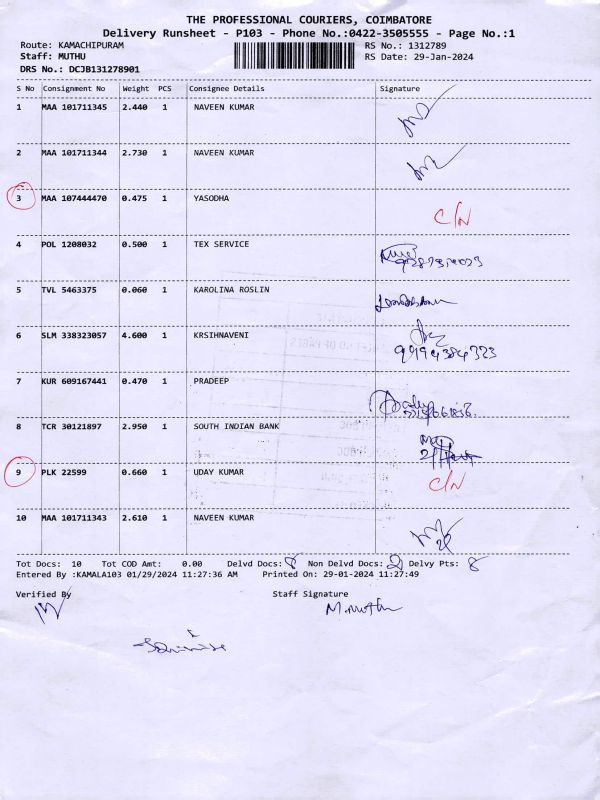 THE PROFESSIONAL COURIERS, COIMBATORE
Delivery Runsheet - P103 - Phone No.:0422-3505555 - Page No.:1
Route: KAMACHIPURAM
RS No.: 1312789
Staff: MUTHU
RS Date: 29-Jan-2024
DRS No.: DCJB131278901
S No Consignment No Weight PCS Consignee Details Signature
1 MAA 101711345 2.440 1 NAVEEN KUMAR
2 MAA 101711344 2.730 1 NAVEEN KUMAR
3 MAA 107444470 0.475 1 YASODHA C/N
4 POL 1208032 0.500 1 TEX SERVICE
5 TVL 5463375 0.060 1 KAROLINA ROSLIN
6 SLM 338323057 4.600 1 KRSIHNAVENI
9994384323
7 KUR 609167441 0.470 1 PRADEEP
8 TCR 30121897 2.950 1 SOUTH INDIAN BANK
9 PLK 22599 0.660 1 UDAY KUMAR C/N
10 MAA 101711343 2.610 1 NAVEEN KUMAR
Tot Docs: 10 Tot COD Amt: 0.00 Delvd Docs: 8 Non Delvd Docs: 2 Delvy Pts: 8
Entered By :KAMALA103 01/29/2024 11:27:36 AM Printed On: 29-01-2024 11:27:49
Verified By Staff Signature
M.Muthu